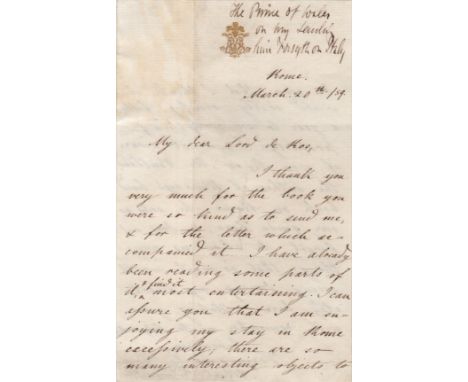 The Prince of Wales
on my sending
him Forsyth on Italy
Rome.
March. 20th /59
My dear Lord de Ros,
I thank you
very much for the book you
were so kind as to send me,
& for the letter which ac-
companied it. I have already
been reading some parts of
it, & find it most entertaining. I can
assure you that I am en-
joying my stay in Rome
excessively; there are so
many interesting objects to